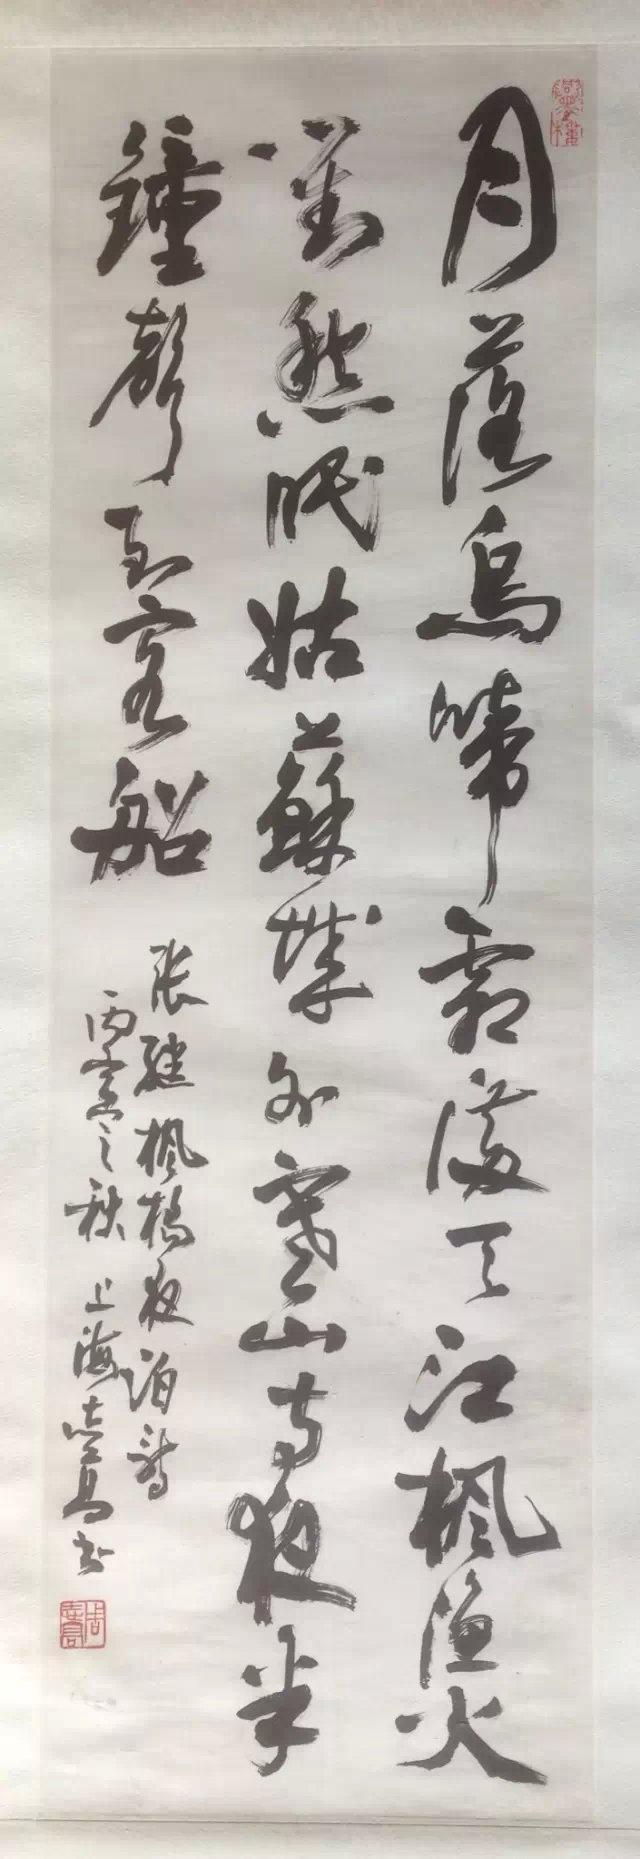 月落烏啼霜滿天江楓漁火
對愁眠姑蘇城外寒山寺夜半
鐘聲到客船
張繼楓橋夜泊詩
丙寅之秋 上海志高書
周志高